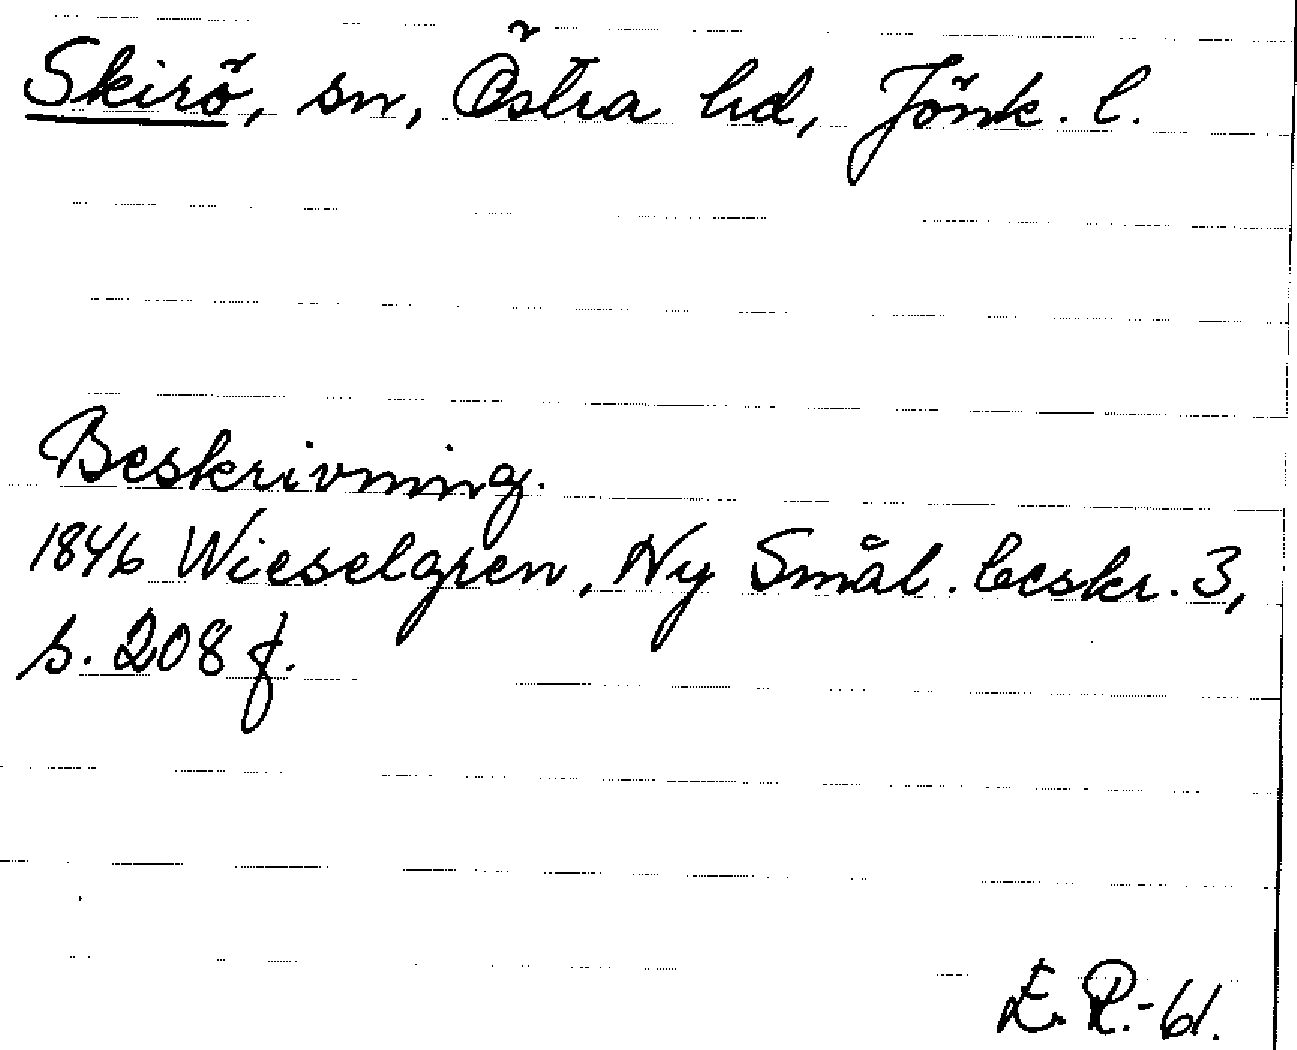 Skirö, sn, Östra hd, Jönk. l.
Beskrivning.
1846 Wieselgren, Ny Smål. beskr. 3,
s. 208 f.
E. R.-61.